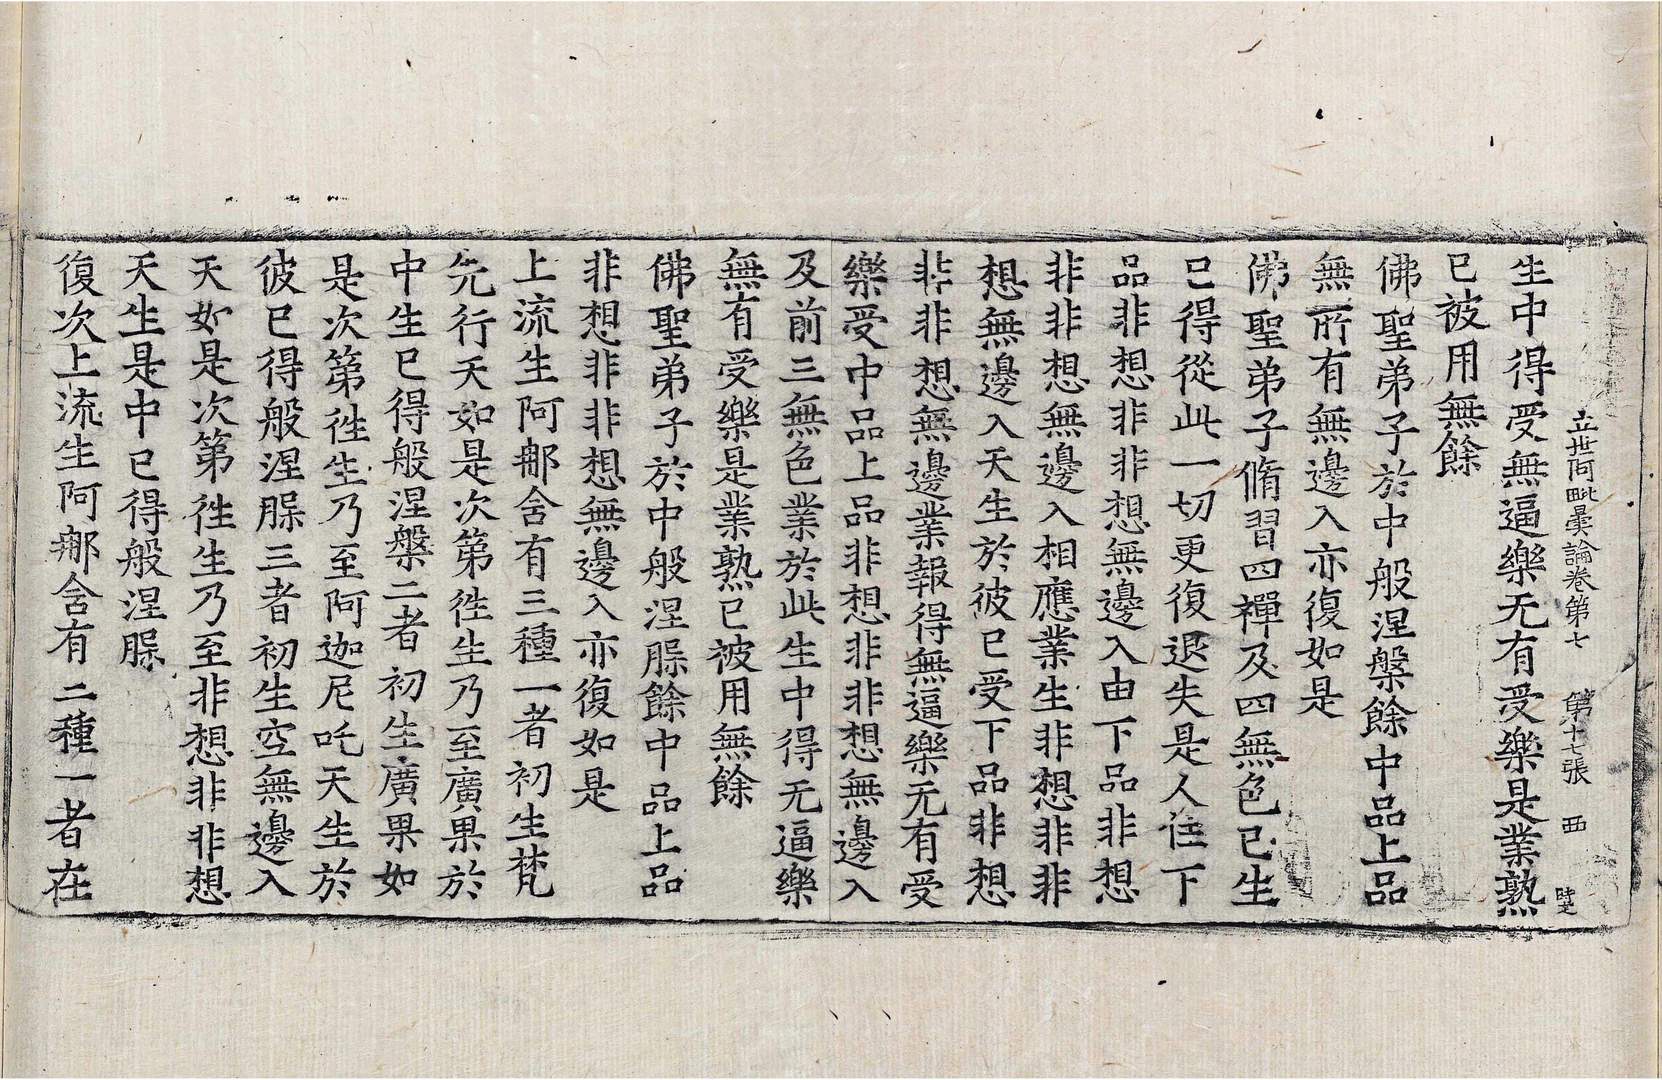 立世阿毗曇論卷第七 第十七張 西
生中得受無逼樂无有受樂是業熟
已被用無餘
佛聖弟子於中般涅槃餘中品上品
無所有無邊入亦復如是
佛聖弟子脩習四禪及四無色已生
已得從此一切更復退失是人住下
品非想非非想無邊入由下品非想
非非想無邊入相應業生非想非非
想無邊入天生於彼已受下品非想
非非想無邊業報得無逼樂无有受
樂受中品上品非想非非想無邊入
及前三無色業於此生中得无逼樂
無有受樂是業熟已被用無餘
佛聖弟子於中般涅槃餘中品上品
非想非非想無邊入亦復如是
上流生阿那含有三種一者初生梵
先行天如是次第徃生乃至廣果於
中生已得般涅槃二者初生廣果如
是次第徃生乃至阿迦尼吒天生於
彼已得般涅槃三者初生空無邊入
天如是次第徃生乃至非想非非想
天生是中已得般涅槃
復次上流生阿那含有二種一者在